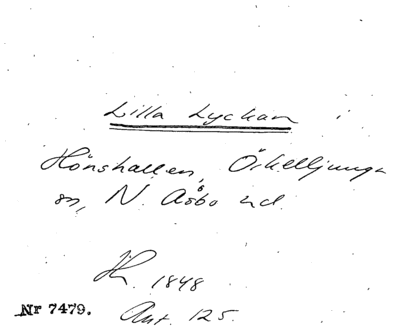 Lilla Lyckan i
Hönshallen, Örkelljunga
sn, N. Åsbo hd.
1848
Nr 7479. Ant. 125.